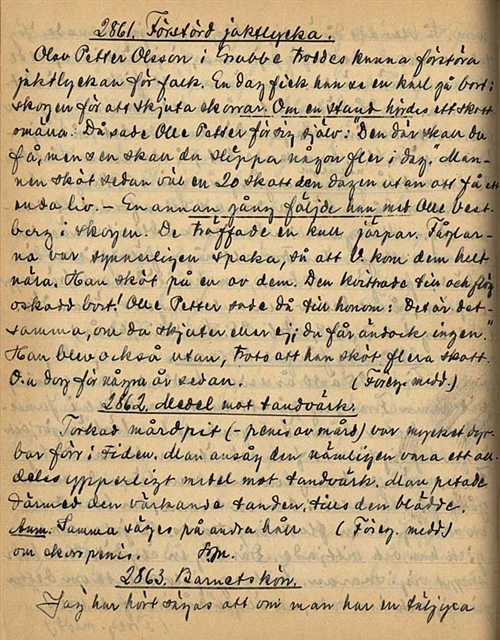 2861. Förstörd jaktlycka.
Olov Petter Olsson i Grubbe troddes kunna förstöra
jaktlyckan för folk. En dag fick han se en karl gå bort i
skogen för att skjuta ekorrar. Om en stund hördes ett skott
smälla. Då sade Olle Petter för sig själv: "Den där skall du
få, men sen skall du slippa någon fler i dag." Man-
nen sköt sedan väl en 20 skott den dagen utan att få ett
enda liv. — En annan gång följde han med Olle Vest-
berg i skogen. De träffade en kull järpar. Fåglar-
na var synnerligen spaka, så att V. kom dem helt
nära. Han sköt på en av dem. Den kvittrade till och flög
oskadd bort. Olle Petter sade då till honom: "Det är det-
samma, om du skjuter eller ej; du får ändock ingen."
Han blev också utan, trots att han sköt flera skott.
O. dog för några år sedan. (Föreg. medd.)
2862. Medel mot tandvärk.
Torkad mårdpit (- penis av mård) var mycket dyr-
bar förr i tiden. Man ansåg den nämligen vara ett all-
deles ypperligt medel mot tandvärk. Man petade
därmed den värkande tanden, tills den blödde.
Anm. Samma säges på andra håll (Föreg. medd.)
om ekorrpenis.
2863. Barnets kön.
Jag har hört sägas att om man har en täljyxa